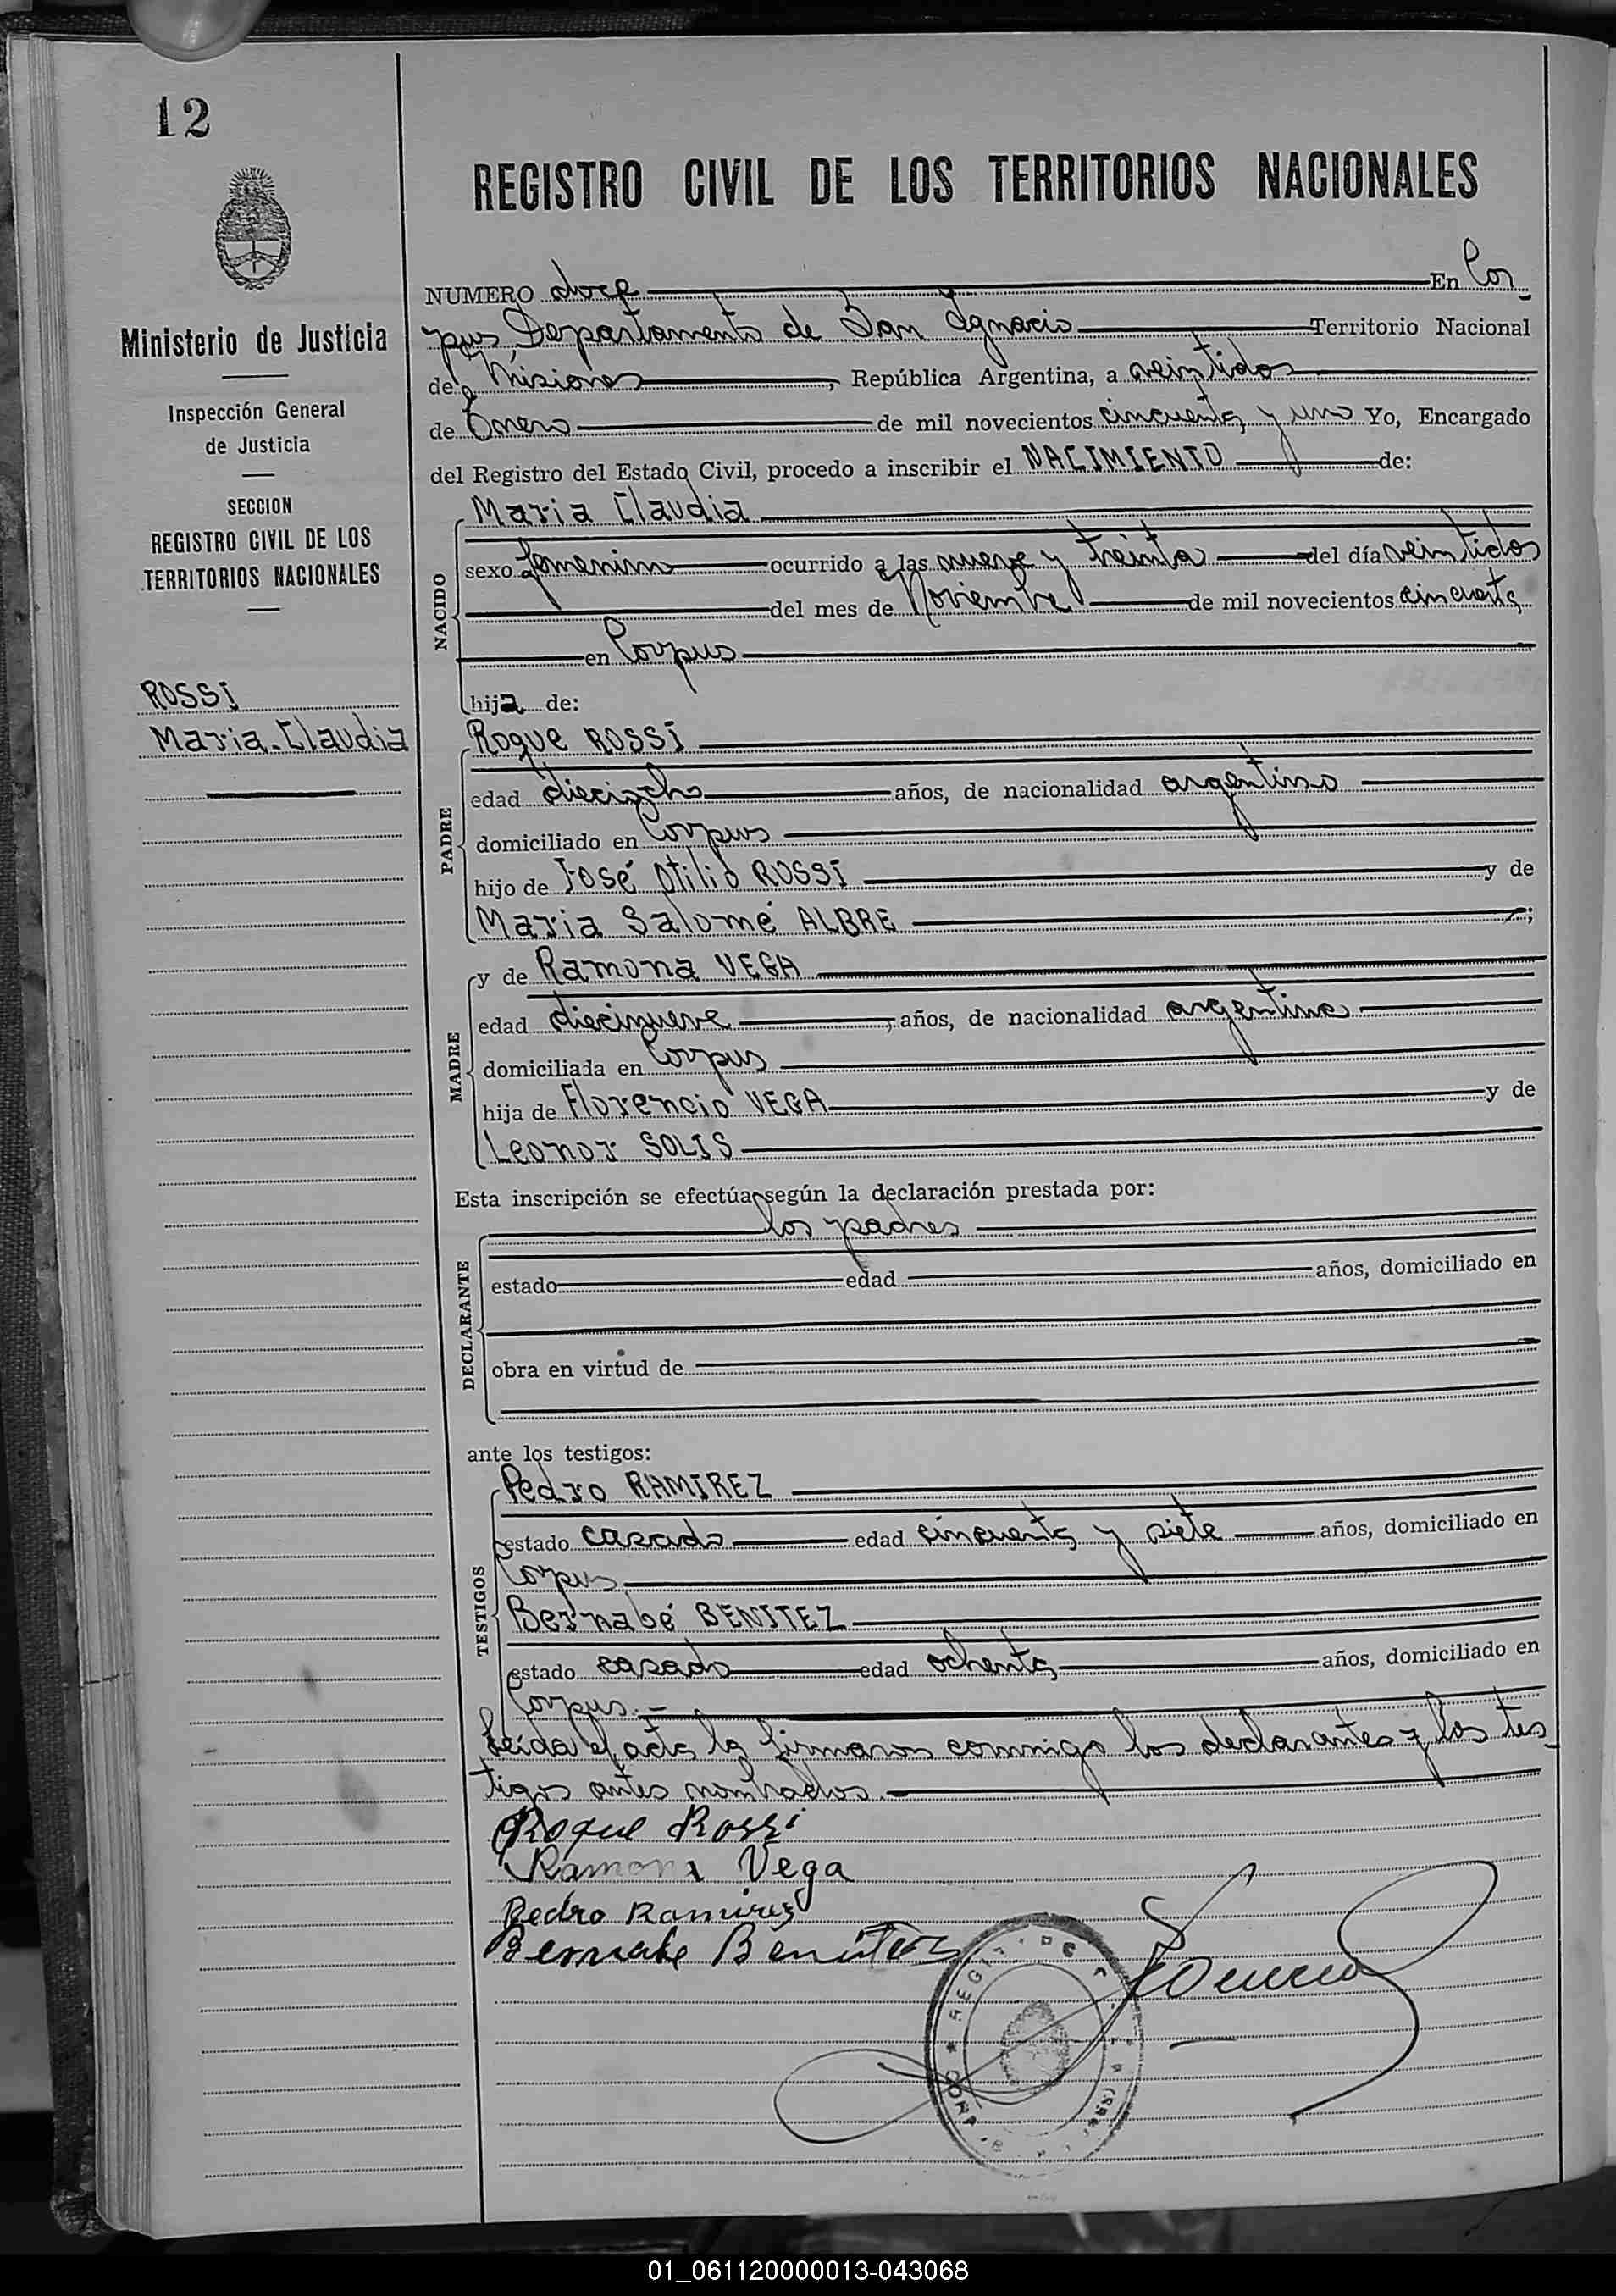 12
REGISTRO CIVIL DE LOS TERRITORIOS NACIONALES
Ministerio de Justicia
Inspección General
de Justicia
SECCION
REGISTRO CIVIL DE LOS
TERRITORIOS NACIONALES
ROSSI
Maria Claudia
NUMERO doce En Cor_
pus, Departamento de San Ignacio Territorio Nacional
de Misiones, República Argentina, a veintidos
de Enero de mil novecientos cincuenta y uno Yo, Encargado
del Registro del Estado Civil, procedo a inscribir el NACIMIENTO de:
NACIDO
Maria Claudia
sexo femenino ocurrido a las nueve y treinta del día veintidos
del mes de Noviembre de mil novecientos cincuenta
en Corpus
hija de:
PADRE
Roque ROSSI
edad dieciocho años, de nacionalidad argentino
domiciliado en Corpus
hijo de José Otilio ROSSI y de
Maria Salomé ALBRE ;
MADRE
y de Ramona VEGA
edad diecinueve años, de nacionalidad argentina
domiciliada en Corpus
hija de Florencio VEGA y de
Leonor SOLIS
Esta inscripción se efectúa según la declaración prestada por:
DECLARANTE
los padres
estado edad años, domiciliado en
obra en virtud de
ante los testigos:
TESTIGOS
Pedro RAMIREZ
estado casado edad cincuenta y siete años, domiciliado en
Corpus
Bernabé BENITEZ
estado casado edad ochenta años, domiciliado en
Corpus.-
Leida el acta la firmaron conmigo los declarantes y los tes_
tigos antes nombrados.-
Roque Rossi
Ramona Vega
Pedro Ramirez
Bernabe Benitez
01_061120000013-043068